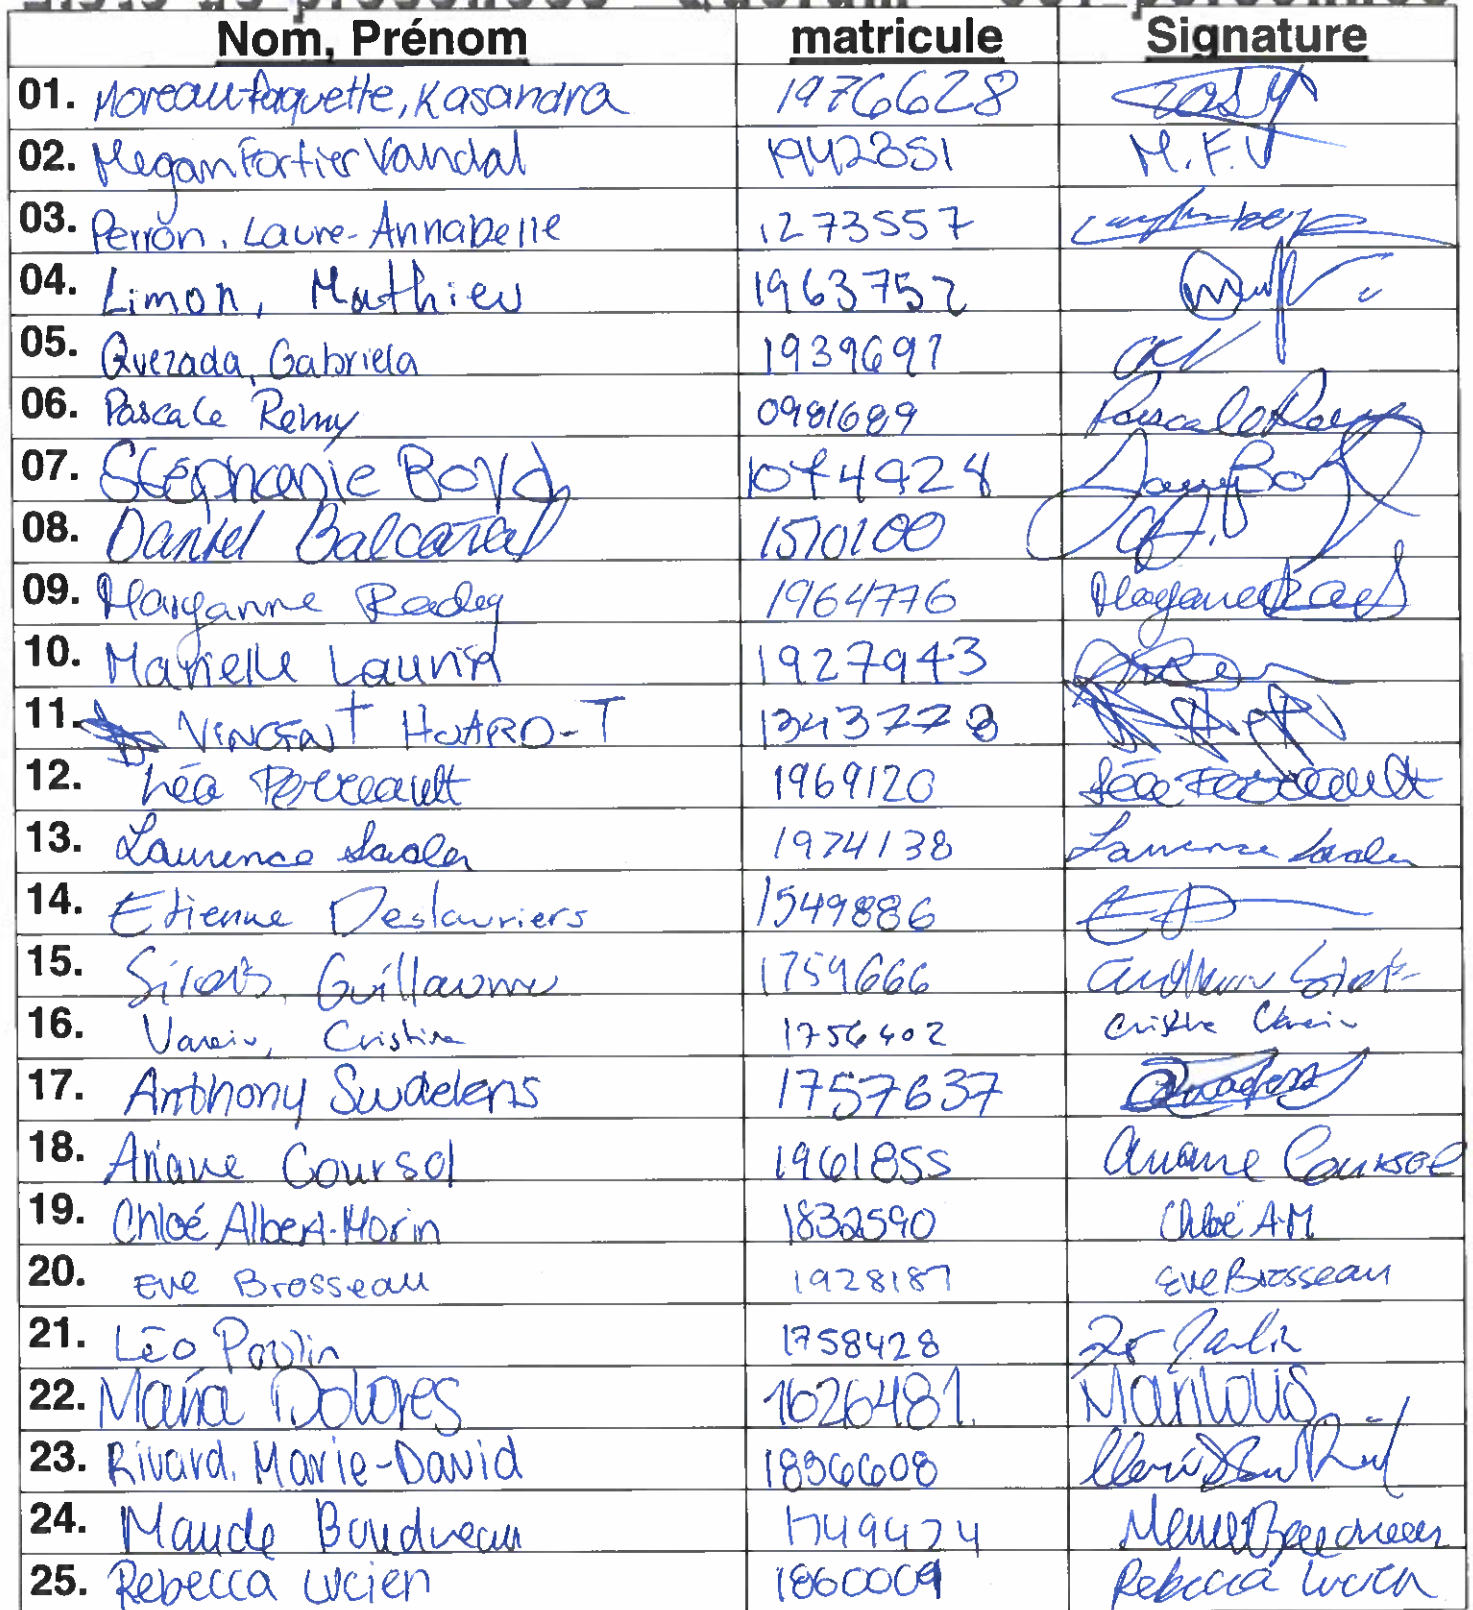 Liste de présences - Quorum
Nom, Prénom matricule Signature
01. Moreau-Paquette, Kasandra 1976628
02. Megan Fortier Vandal 1942351 M.F.V
03. Perron, Laure-Annabelle 1273557
04. Limon, Mathieu 1963752
05. Quezada, Gabriela 1939697
06. Pascale Remy 0981689 Pascale Remy
07. Stéphanie Boyd 1074928
08. Daniel 1510100
09. Morganne 1964776
10. Marielle 1927943
11. VINCENT HUARD-T 1343773
12. Léa Perreault 1969120 Léa Perreault
13. Laurence 1974138 Laurence
14. Etienne Deslauriers 1549886 ED
15. Sirois, Guillaume 1759666
16. Cristina 1756402
17. Anthony Swaelens 1757637
18. Ariane Coursol 1961855 Ariane Coursol
19. Chloé Albert-Morin 1832590 Chloé A-M
20. Eve Brosseau 1928187 Eve Brosseau
21. Léo Poulin 1758428
22. María Dolores 1626481.
23. Rivard, Marie-David 1896608
24. Maude Boudreau 1749424
25. Rebecca Lucien 1860009 Rebecca Lucien